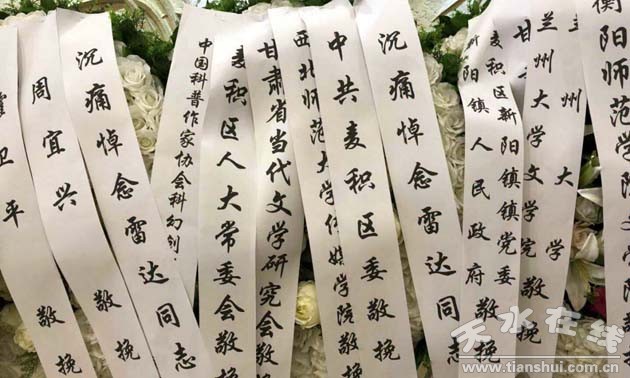 卫平
周宜兴 敬挽
沉痛悼念雷达同志
中国科普作家协会科幻创
麦积区人大常委会敬挽
甘肃省当代文学研究会敬挽
西北师范大学传媒学院敬挽
中共麦积区委敬挽
沉痛悼念雷达同志
麦积区新阳镇镇党委
新阳镇人民政府敬挽
甘
兰州大学文学院敬挽
州大学
衡阳师范学院
天水在线
www.tianshui.com.cn